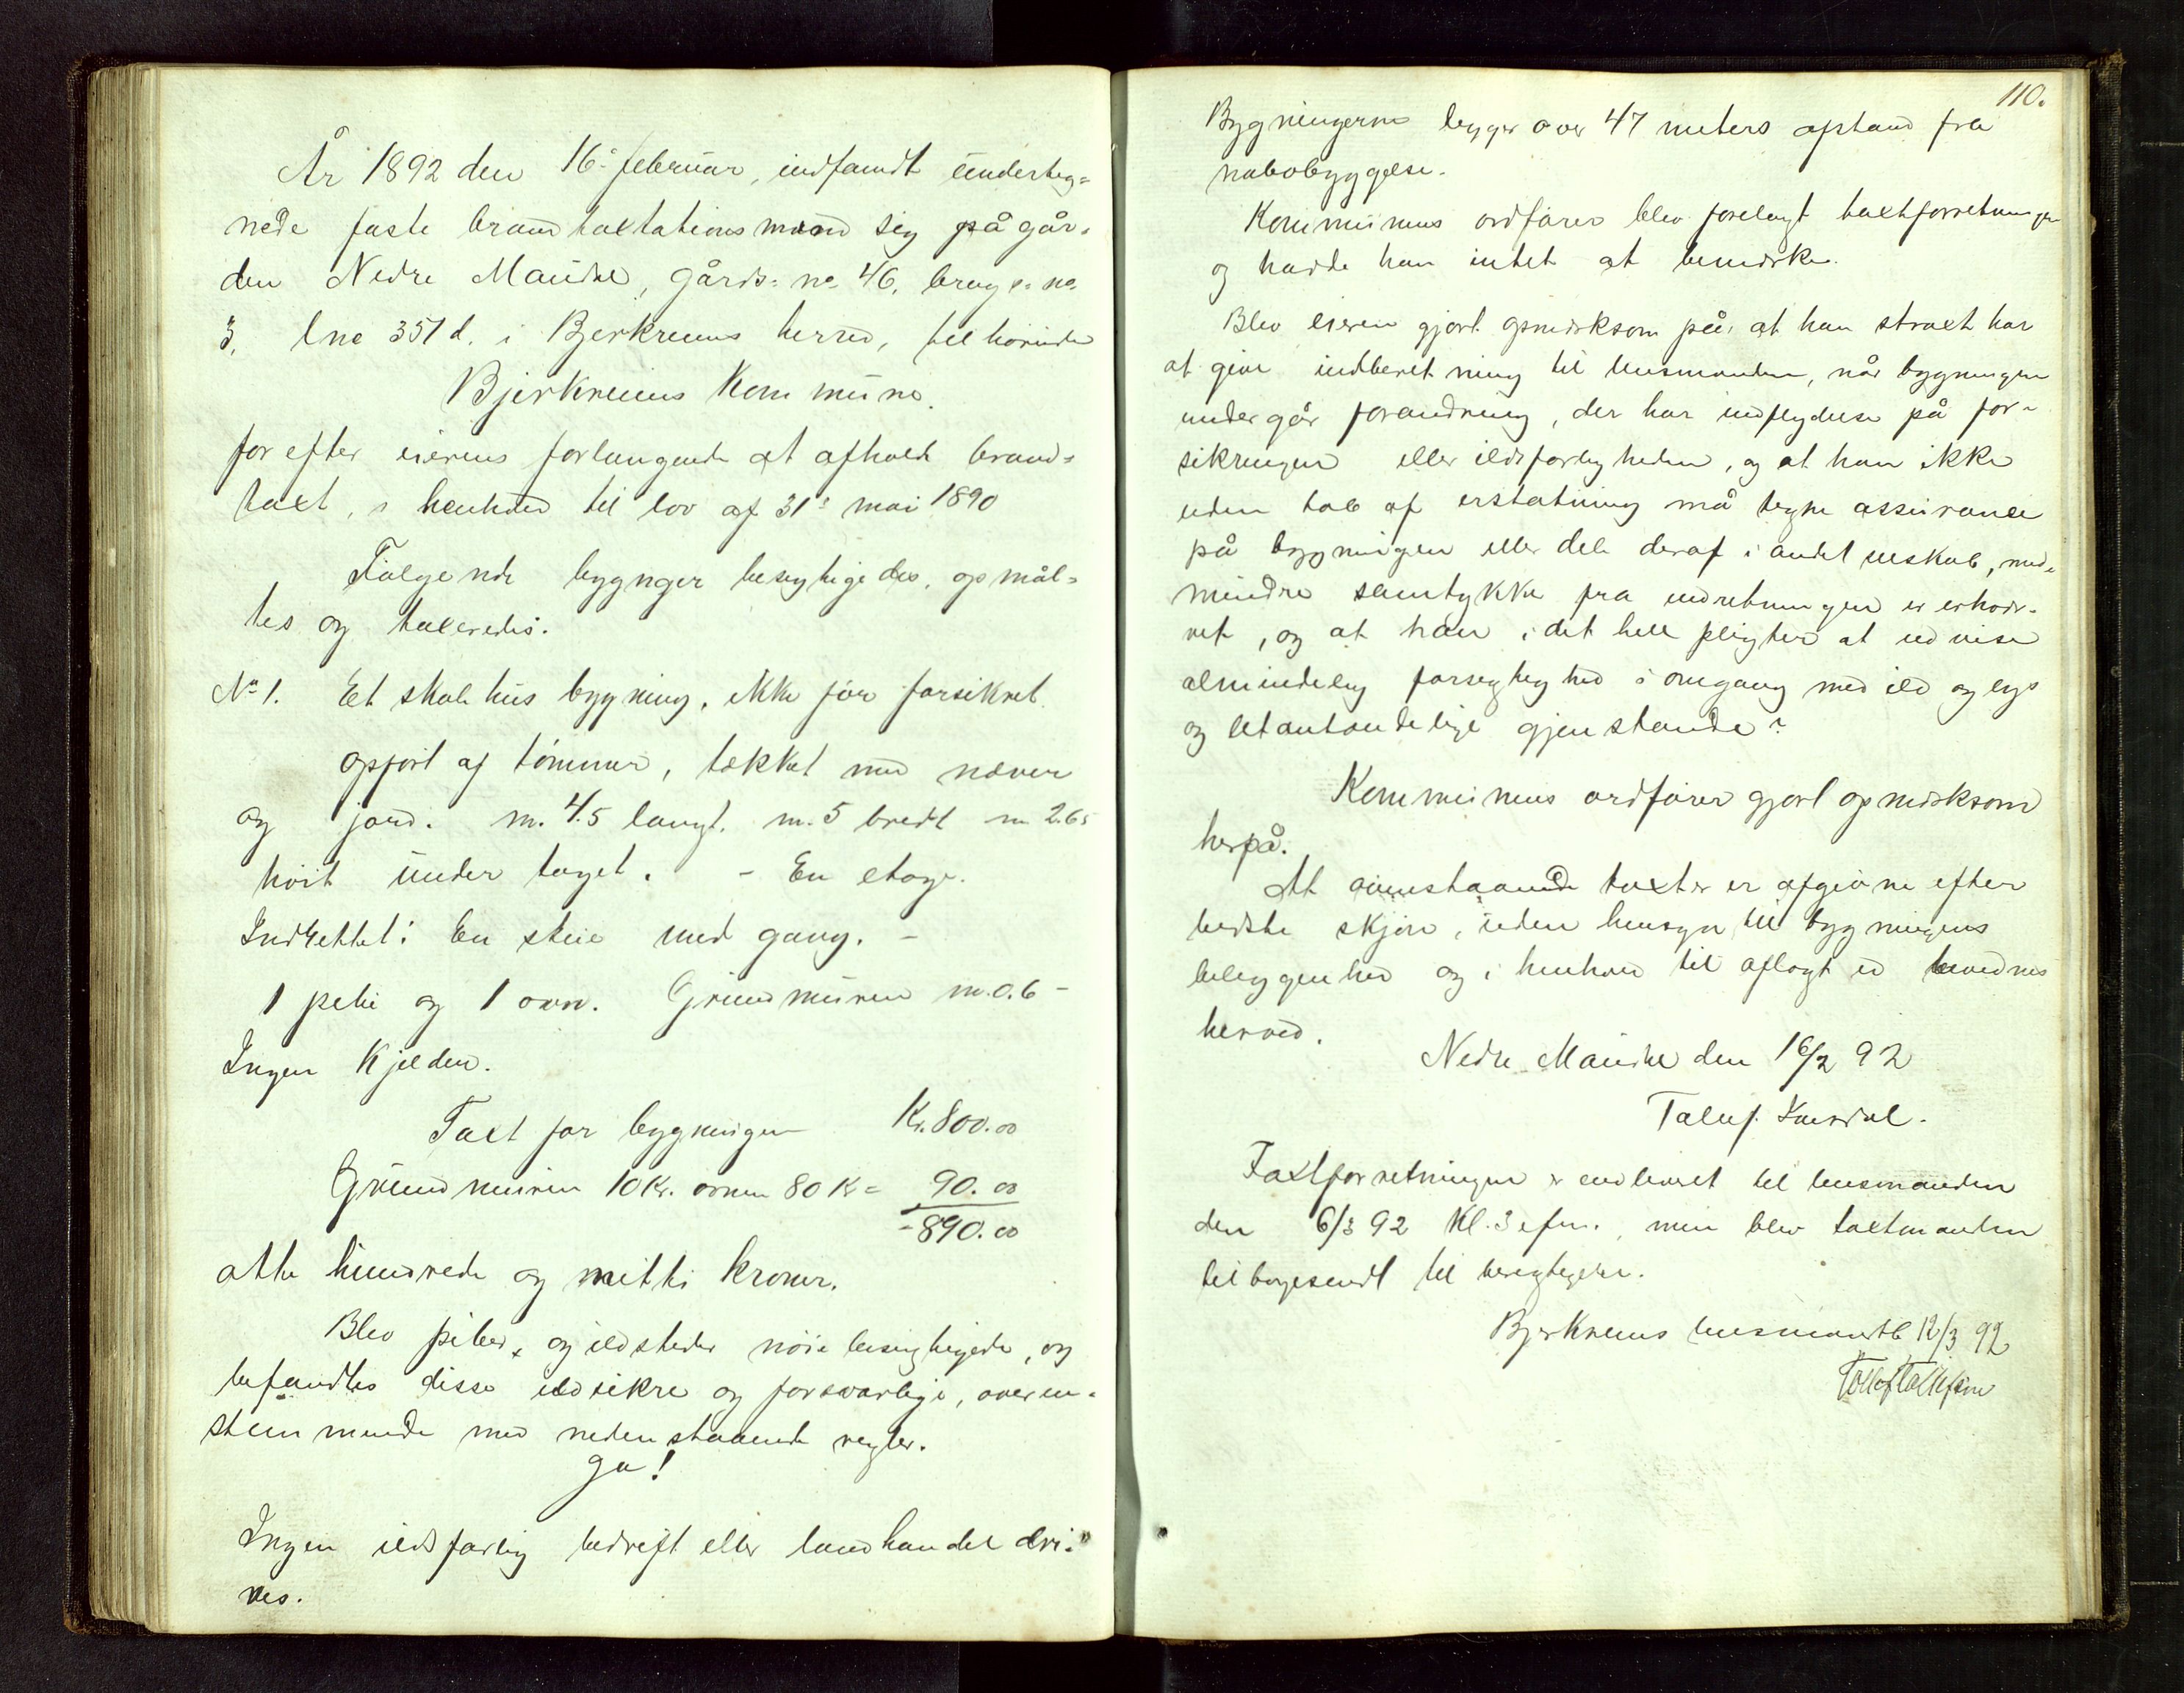 År 1892 den 16de februar, indfandt underteg=
nede faste brandtaxtationsmænd sig på går=
den Nedre Maudal, gårds: no 46, brugs: no
3, lno 351 d. i Bjerkreims herred, tilhørende
Bjerkreims Kommune.
for efter eierens forlangende at afholde brand=
taxt, i henhold til lov af 31te mai 1890
Følgende bygnger besigtigedes, opmål=
tes og taxeredes.
No 1. Et skolehus bygning, ikke før forsikret
opført af tømmer, tækket med næver
og jord. m. 7.5 langt. m. 5 bredt m 2.65
høit under taget. - En etage.
Indrettet: En stue med gang. -
1 pibe og 1 ovn. Grundmuren m. 0.6 -
Ingen Kjelder.
Taxt for bygningen Kr. 800.00
Grundmuren 10 Kr. ovnen 80 Kr = 90.00
- 890.00
otte hundrede og nitti kroner.
Blev piber, og ildsteder nøie besigtigede, og
befandtes disse ildsikre og forsvarlige, overen=
stemmende med nedenstaaende regler.
Ja!
Ingen ildsfarlig bedrift eller landhandel dri=
ves.
110.
Bygningerne ligger over 47 meters afstand fra
nabobyggelse.
Kommunens ordfører blev forelagt taxtforretningen
og havde han intet at bemærke.
Blev eieren gjort opmærksom på, at han straxt har
at give indberetning til lensmanden, når bygningen
undergår forandring, der har indflydelse på for=
sikringen eller ildsfarligheden, og at han ikke
uden tab af erstatning må tegne assurance
på bygningen eller dele deraf i andet selskab, med=
mindre samtykke fra indretningen er erhver=
vet, og at han i det hele pligter at udvise
almindelig forsigtighed i omgang med ild og lys
og letantændelige gjenstande?
Kommunens ordfører gjort opmærksom
herpå.
At ovenstaaende taxter er afgivne efter
bedste skjøn, uden hensyn til bygningens
beliggenhed og i henhold til aflagt ed bevidnes
herved.
Nedre Maudal den 16/2 92
Taxtforretningen er indleveret til lensmanden
den 6/3 92 Kl. 3 efm., men blev taxtmanden
tilbagesendt til berigtigelse.
Bjerkreims lensmandsb 12/3 92